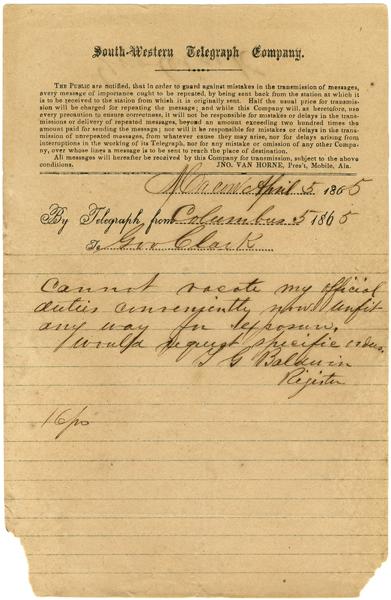 South-Western Telegraph Company.
THE PUBLIC are notified, that in order to guard against mistakes in the transmission of messages,
every message of importance ought to be repeated, by being sent back from the station at which it
is to be received to the station from which it is originally sent. Half the usual price for transmis-
sion will be charged for repeating the message; and while this Company will, as heretofore, use
every precaution to ensure correctness, it will not be responsible for mistakes or delays in the trans-
missions or delivery of repeated messages, beyond an amount exceeding two hundred times the
amount paid for sending the message; nor will it be responsible for mistakes or delays in the trans-
mission of unrepeated messages, from whatever cause they may arise, nor for delays arising from
interruptions in the working of its Telegraph, nor for any mistake or omission of any other Com-
pany, over whose lines a message is to be sent to reach the place of destination.
All messages will hereafter be received by this Company for transmission, subject to the above
conditions. JNO. VAN HORNE, Pres't, Mobile, Ala.
Macon April 5 1865
By Telegraph, from Columbus 5 1865
To Gov Clark
Cannot vacate my official
duties conveniently now unfit
any way for exposure,
Would request specific orders.
T G Baldwin
Register